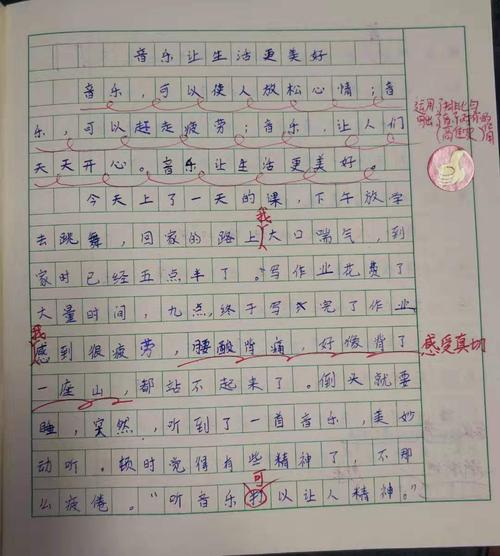 音乐让生活更美好
音乐，可以使人放松心情；音
乐，可以赶走疲劳；音乐，让人们
天天开心。音乐让生活更美好。
今天上了一天的课，下午放学
我
去跳舞，回家的路上大口喘气，到
家时已经五点半了。写作业花费了
大量时间，九点，终于写完了作业
我
感到很疲劳，腰酸背痛，好像背了
感受真切
一座山，都站不起来了。倒头就要
睡，突然，听到了一首音乐，美妙
动听。顿时觉得有些精神了，不那
可
么疲倦。“听音乐以让人精神。”
运用了排比句